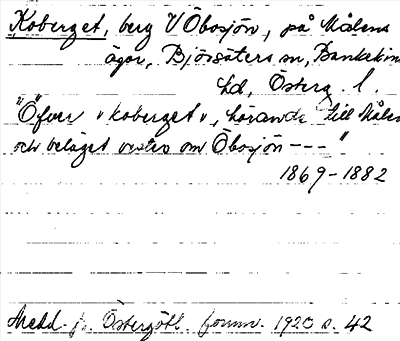 Koberget, berg V Öbosjön, på Målens
ägor, Björsäters sn, Bankekin
hd, Österg. l.
"Öfver "Koberget", hörande till Målen
och beläget vester om Öbosjön ---"
1869-1882
Medd. fr. Östergötl. fornm. 1920 s. 42